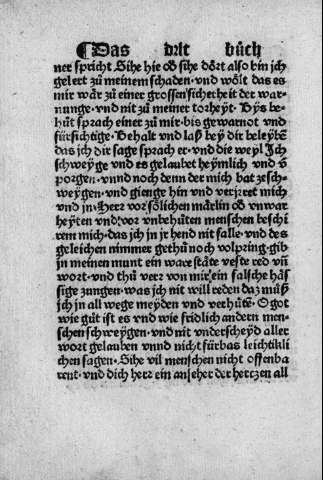 ¶Das drit būch
ner spricht Sihe hie oð sihe dört also bin jch
gelert zū meinem schaden · vnd wölt das es
mir wär zū einer grossen sicherheit der war-
nunge · vnd nit zū meiner torheyt · Bys be-
hūt sprach einer zū mir · bis gewarnot vnd
fürsichtige · Behalt vnd laß bey dir beleyben
das jch dir sage sprach er · vnd die weyl Jch
schweyge vnd es gelaubet heymlich vnd v̄
porgen · vnnd noch denn der mich bat zesch-
weygen · vnd gienge hin vnd verjret mich
vnd jn · Herr vor sölichen märlin oð vnwar
heyten vnd vor vnbehūten menschen beschi
rem mich · das jch in jr hend nit falle · vnd des
geleichen nimmer gethū noch volpring · gib
jn meinen munt ein ware stäte veste red vn̄
wort · vnd thū verr von mir ein falsche häs
sige zungen · was jch nit will reden daz mūß
jch jn all wege meyden vnd verhūtē · O got
wie gūt ist es vnd wie fridlich andern men-
schen schweygen · vnd nit vnderscheyd aller
wort gelauben vnnd nicht fürbas leichtikli
chen sagen · Sihe vil menschen nicht offenba
rent · vnd dich herr ein anseher der hertzen all